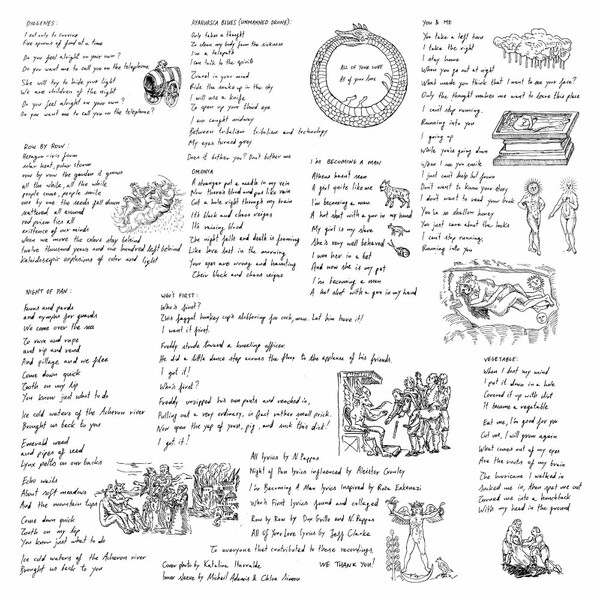 DIOGENES:
I eat only to survive
Five spoons of food at a time
Do you feel alright on your own?
Do you want me to call you on the telephone
She will try to hide your light
We are children of the night
Do you feel alright on your own?
Do you want me to call you on the telephone?
ROW BY ROW:
Hexagon-iris form
solar heat, polar storm
row by row the garden it grows
all the while, all the while
people come, people smile
one by one the seeds fall down
scattered all around
red prism ties all
existence of our minds
when we move the colors stay behind
twelve thousand years and one hundred left behind
kaleidoscopic explosions of color and light
AYAHUASCA BLUES (UNMANNED DRONE):
Only takes a thought
To clean my body from the sickness
I'm a telepath
I can talk to the spirits
Travel in your mind
Ride the snake up in the sky
I will use a knife
To open up your third eye
I am caught midway
Between tribalism tribalism and technology
My eyes turned grey
Does it bother you? Don't bother me
OMONIA
A stranger put a needle in my vein
Now there's blood and pus like rain
Got a hole right through my brain
It's black and chaos reigns
It's raining blood
The night falls and death is foaming
Like love lost in the morning
Your eyes are wrong and haunting
Their black and chaos reigns
ALL OF YOUR LOVE
All of your love
I'M BECOMING A MAN
Athens haunt seen
A girl quite like me
I'm becoming a man
A hot shot with a gun in my hand
My girl is my slave
She's very well behaved
I won her in a bet
And now she is my pet
I'm becoming a man
A hot shot with a gun in my hand
YOU & ME
You take a left here
I take the right
I stay home
When you go out at night
What makes you think that I want to see your face?
Only the thought makes me want to leave this place
I can't stop running,
Running into you
I going up
While you're going down
When I see you smile
I just can't help but frown
Don't want to know your story
I don't want to read your book
You're so shallow honey
You just care about the looks
I can't stop running;
Running into you
NIGHT OF PAN:
Fauns and pards
and nymphs for guards
We come over the sea
To rave and rape
and rip and rend
And pillage and we flee
Come down quick
Tooth on my lip
You know just what to do
Ice cold waters of the Acheron river
Brought us back to you
Emerald weed
and pipes of reed
Lynx pelts on our backs
Echo wails
About soft meadows
And the mountain tops
Come down quick
Tooth on my lip
You know just what to do
Ice cold waters of the Acheron river
Brought us back to you
WHO'S FIRST:
Who's first?
This faggot honkey cop's slobbering for cock, man. Let him have it!
I want it first.
Freddy strode toward a kneeling officer
He did a little dance step across the floor to the applause of his friends.
I got it!
Who's first?
Freddy unzipped his own pants and reached in,
Pulling out a very ordinary, in fact rather small prick.
Now open the yap of yours, pig, and suck this dick!
I got it!
VEGETABLE:
When I lost my mind
I put it down in a hole
Covered it up with dirt
It became a vegetable
Eat me, I'm good for you
Cut me, I will grow again
What comes out of my eyes
Are the roots of my brain
The hurricane I walked in
Sucked me in, then spat me out
Turned me into a hunchback
With my head in the ground
All lyrics by N. Pappas
Night of Pan lyrics influenced by Aleister Crowley
I'm Becoming A Man lyrics inspired by Roza Eskenazi
Who's First lyrics found and collaged
Row by Row by Doy Gaille and N. Pappas
All Of Your Love lyrics by Jeff Clarke
To everyone that contributed to these recordings,
WE THANK YOU!
Cover photo by Katalina
Inner sleeve by Michail & Chloe